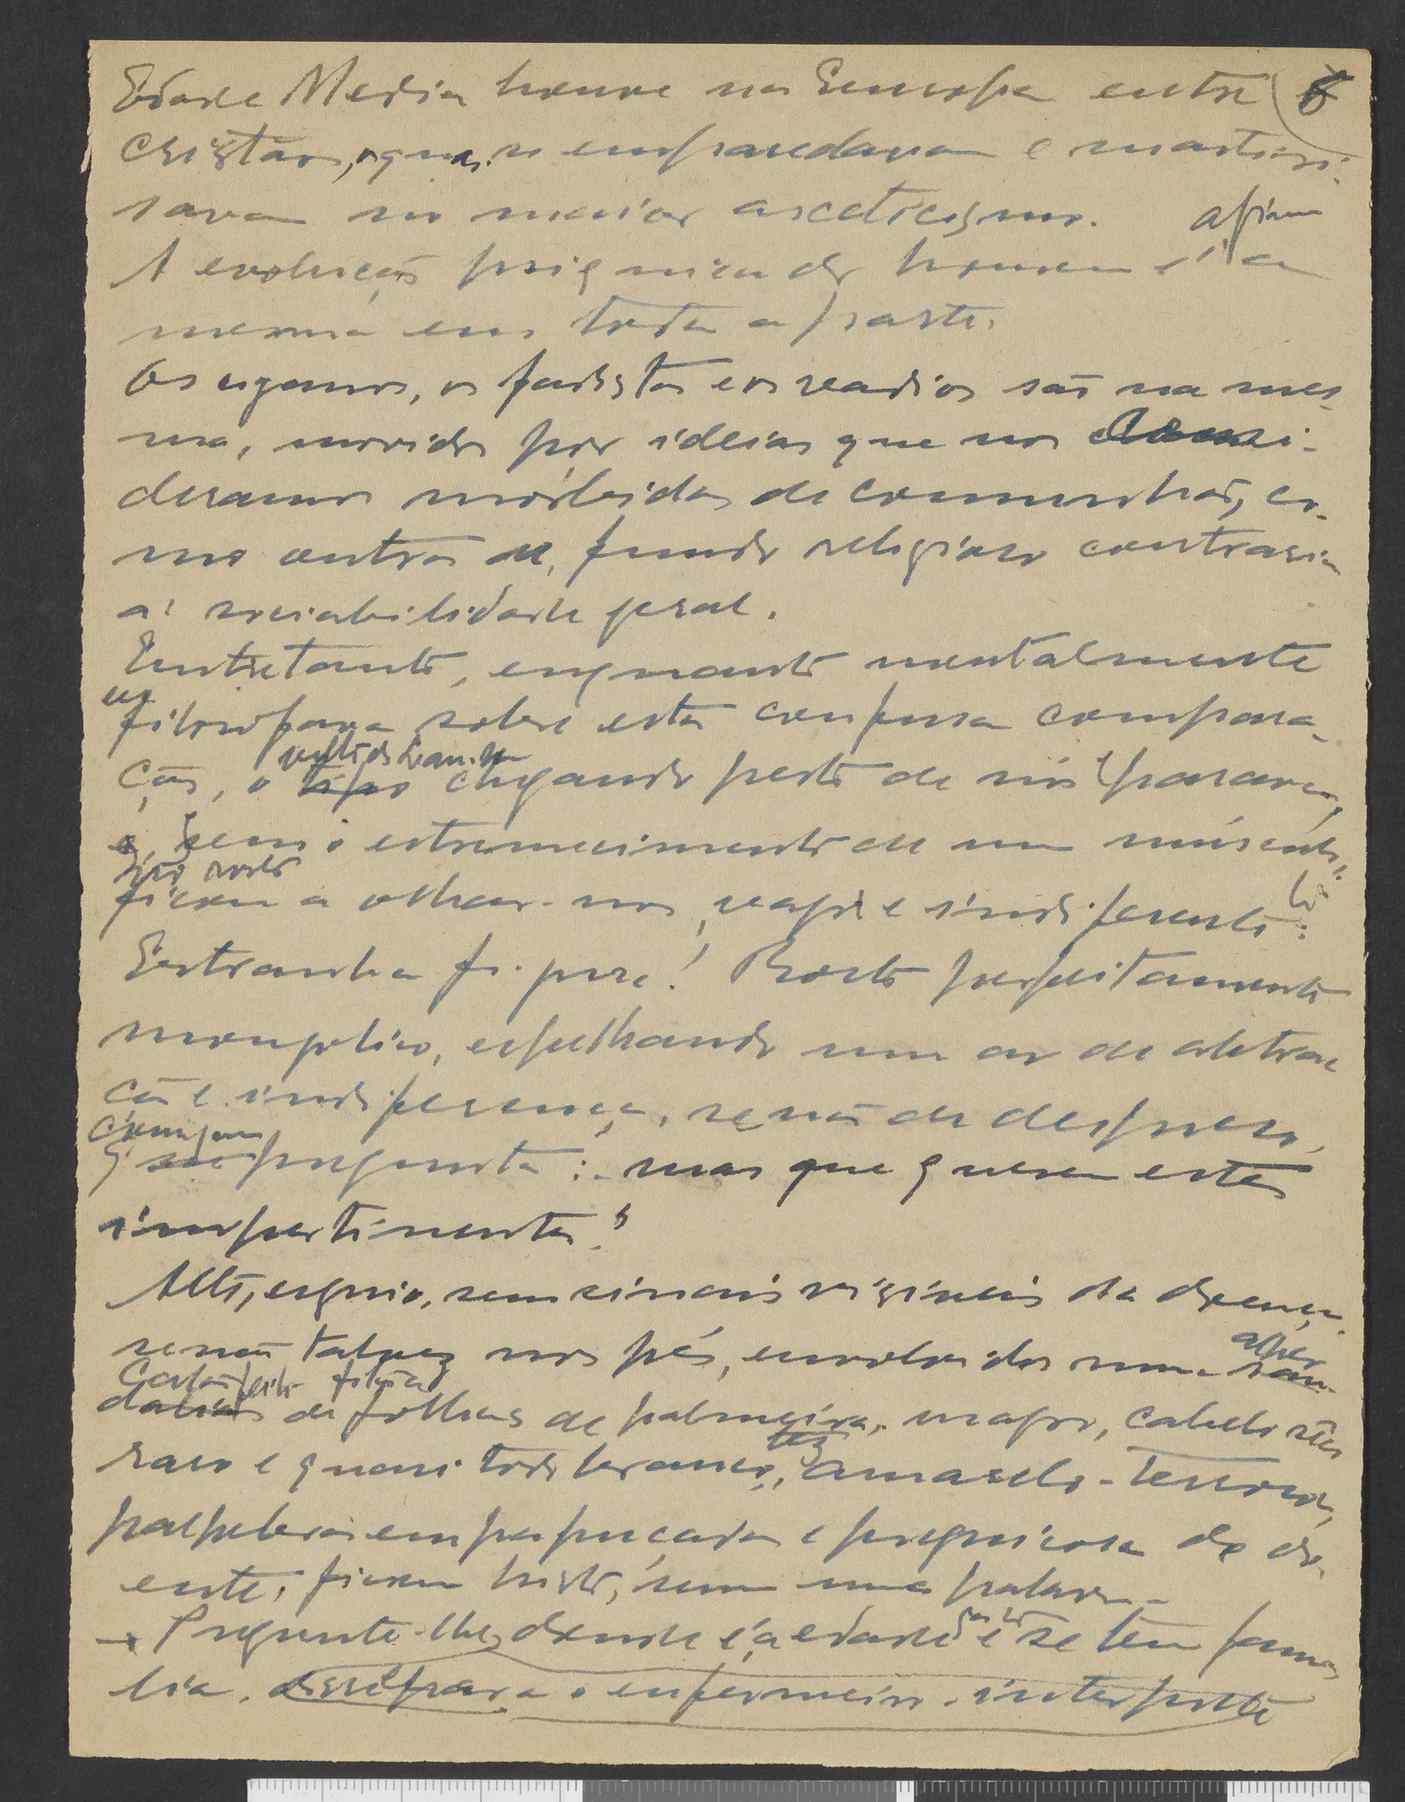 Edade Media houve na Europa entre 8
cristãos, que se emparedavam e martiri-
savam no maior asceticismo. afinal
A evolução psiquica do homem é a
mesma em toda a parte.
Os iogamos, os fadistas e os vadios são na mes-
ma, movidos por ideias que nos consi-
deramos morbidas de comunhão, co-
mo outros de fundo religioso contraria
á sociabilidade geral.
Entretanto, enquanto mentalmente
eu
filosofava sobre esta confusa compara-
ção, o tipo chegando perto de nós parava,
e sem o estremecimento de um músculo,
no rosto
ficou a olhar-nos, vago e indiferente.
Extranha figura! Rosto perfeitamente
mongolico, espelhando um ar de abstrac
ção e indiferença, senão de despreso,
e pergunta: mas que querem estes
impertinentes?
Alto, esguio, sem sinais visiveis da doença,
senão talvez nos pés, envolvidos numa san-
dalias de folhas de palmeira, magro, cabelo
raso e quasi todo branco, tez amarelo-terrosa,
palpebras empapuçadas e preguiçosa de do-
ente, ficou hirto, sem uma palavra.
- Pergunte-lhe, donde é, a edade e se tem fami-
lia. o enfermeiro interprete